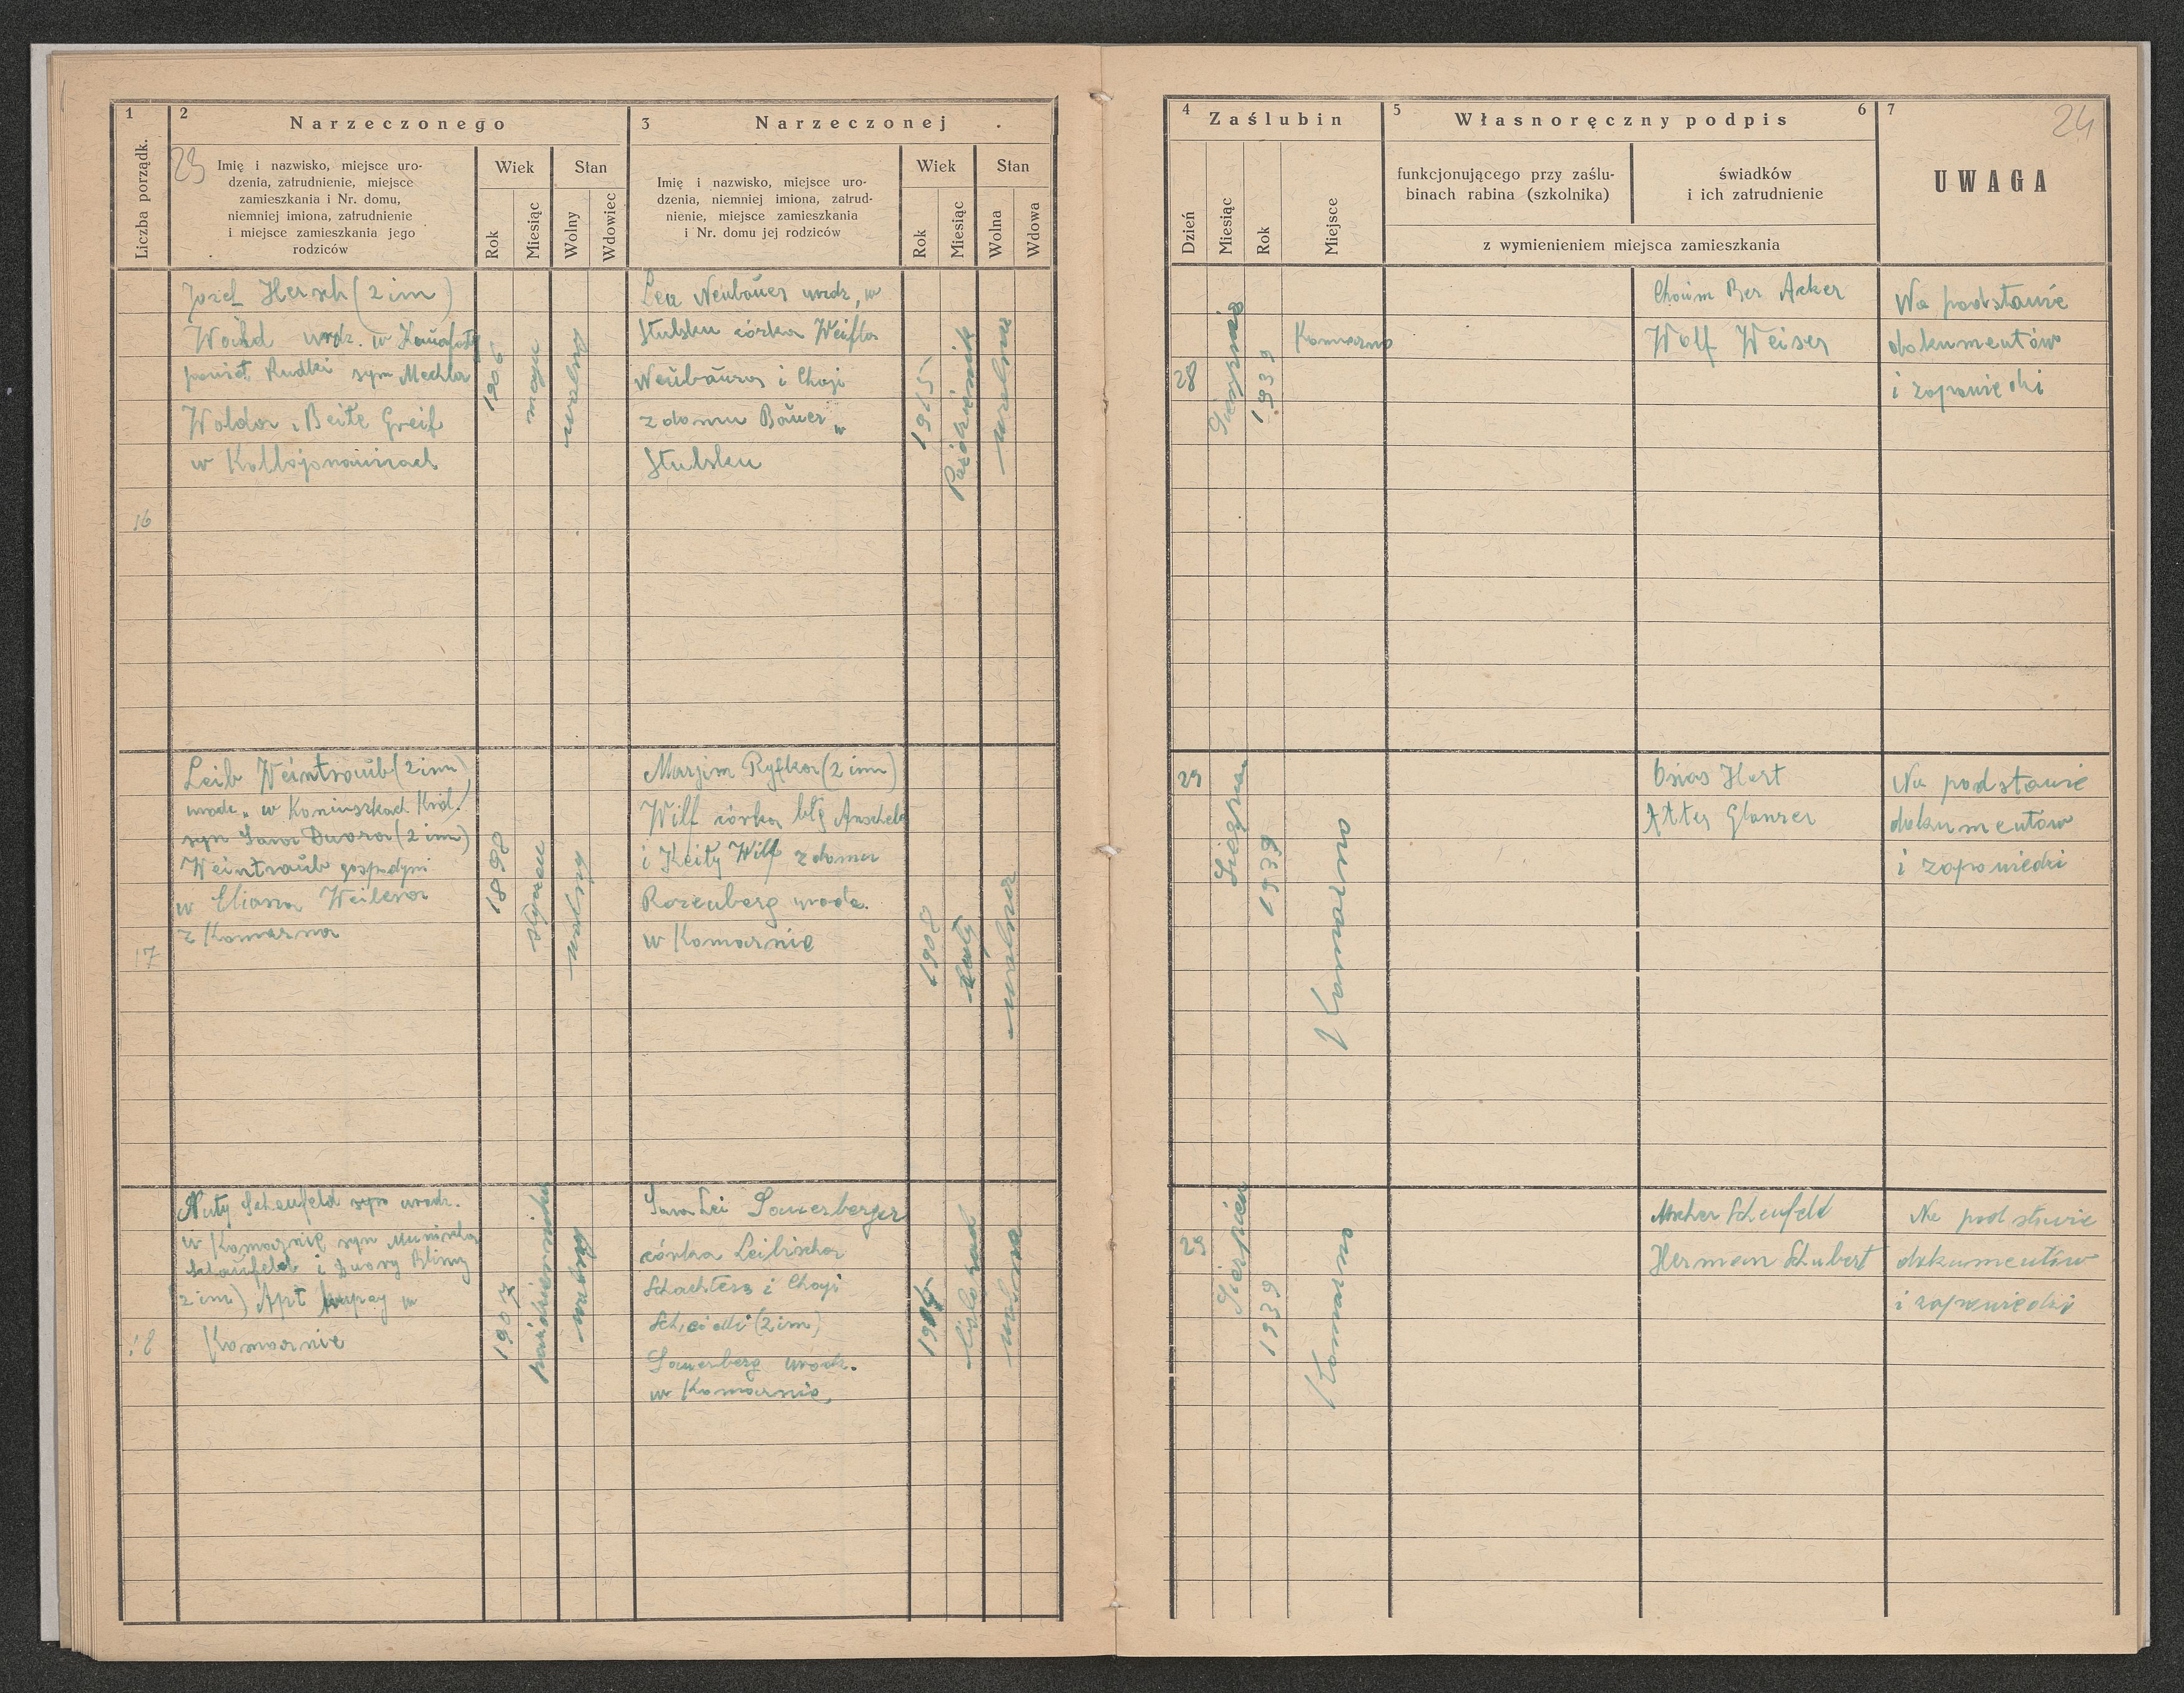 1
2
Narzeczonego
3
Narzeczonej
Liczba porządk.
23
Imię i nazwisko, miejsce uro-
dzenia, zatrudnienie, miejsce
zamieszkania i Nr. domu,
niemniej imiona, zatrudnienie
i miejsce zamieszkania jego
rodziców
Wiek
Stan
Rok
Miesiąc
Wolny
Wdowiec
Imię i nazwisko, miejsce uro-
dzenia, niemniej imiona, zatrud-
nienie, miejsce zamieszkania
i Nr. domu jej rodziców
Wiek
Stan
Rok
Miesiąc
Wolna
Wdowa
4
Zaślubin
5
Własnoręczny podpis
6
7
24
Dzień
Miesiąc
Rok
Miejsce
funkcjonującego przy zaślu-
binach rabina (szkolnika)
świadków
i ich zatrudnienie
z wymienieniem miejsca zamieszkania
UWAGA
16
Józef Hersch (2 im)
urodz. w
powiat Rudki syn Mechla
Walda i Beile Greif
w
maju
wolny
Lea Neubauer urodz. w
Stulsku córka
Neubauera i Chaji
z domu Bauer w
Stulsku
1915
Październik
wolna
28
Sierpnia
1939
Komarno
Chaim Ber Acker
Wolf Weiser
Na podstawie
dokumentów
i zapowiedzi
17
Leib Weintraub (2 im)
urodz. w Koniuszkach Król.
syn Sara Dwora (2 im)
Weintraub gospodyni
w
z Komarna
1898
styczeń
wolny
Marjim Ryfka (2 im)
Wilf córka błg Anschela
i Keity Wilf z domu
Rozenberg urodz.
w Komarnie
1908
luty
wolna
29
Sierpnia
1939
Komarno
Osias Hert
Alter Glanzer
Na podstawie
dokumentów
i zapowiedzi
18
Nuty Scheufeld syn urodz.
w Komarnie syn
i Dwory Bliny
(2 im) Apt w
Komarnie
1907
październiku
wolny
Sara Lei Sauerberger
córka Leibischa
Schachtera i Chaji
(2 im)
Sauerberg urodz.
w Komarnie,
listopad
wolna
29
Sierpień
1939
Komarno
Ascher Scheufeld
Herman Schubert
Na podstawie
dokumentów
i zapowiedzi